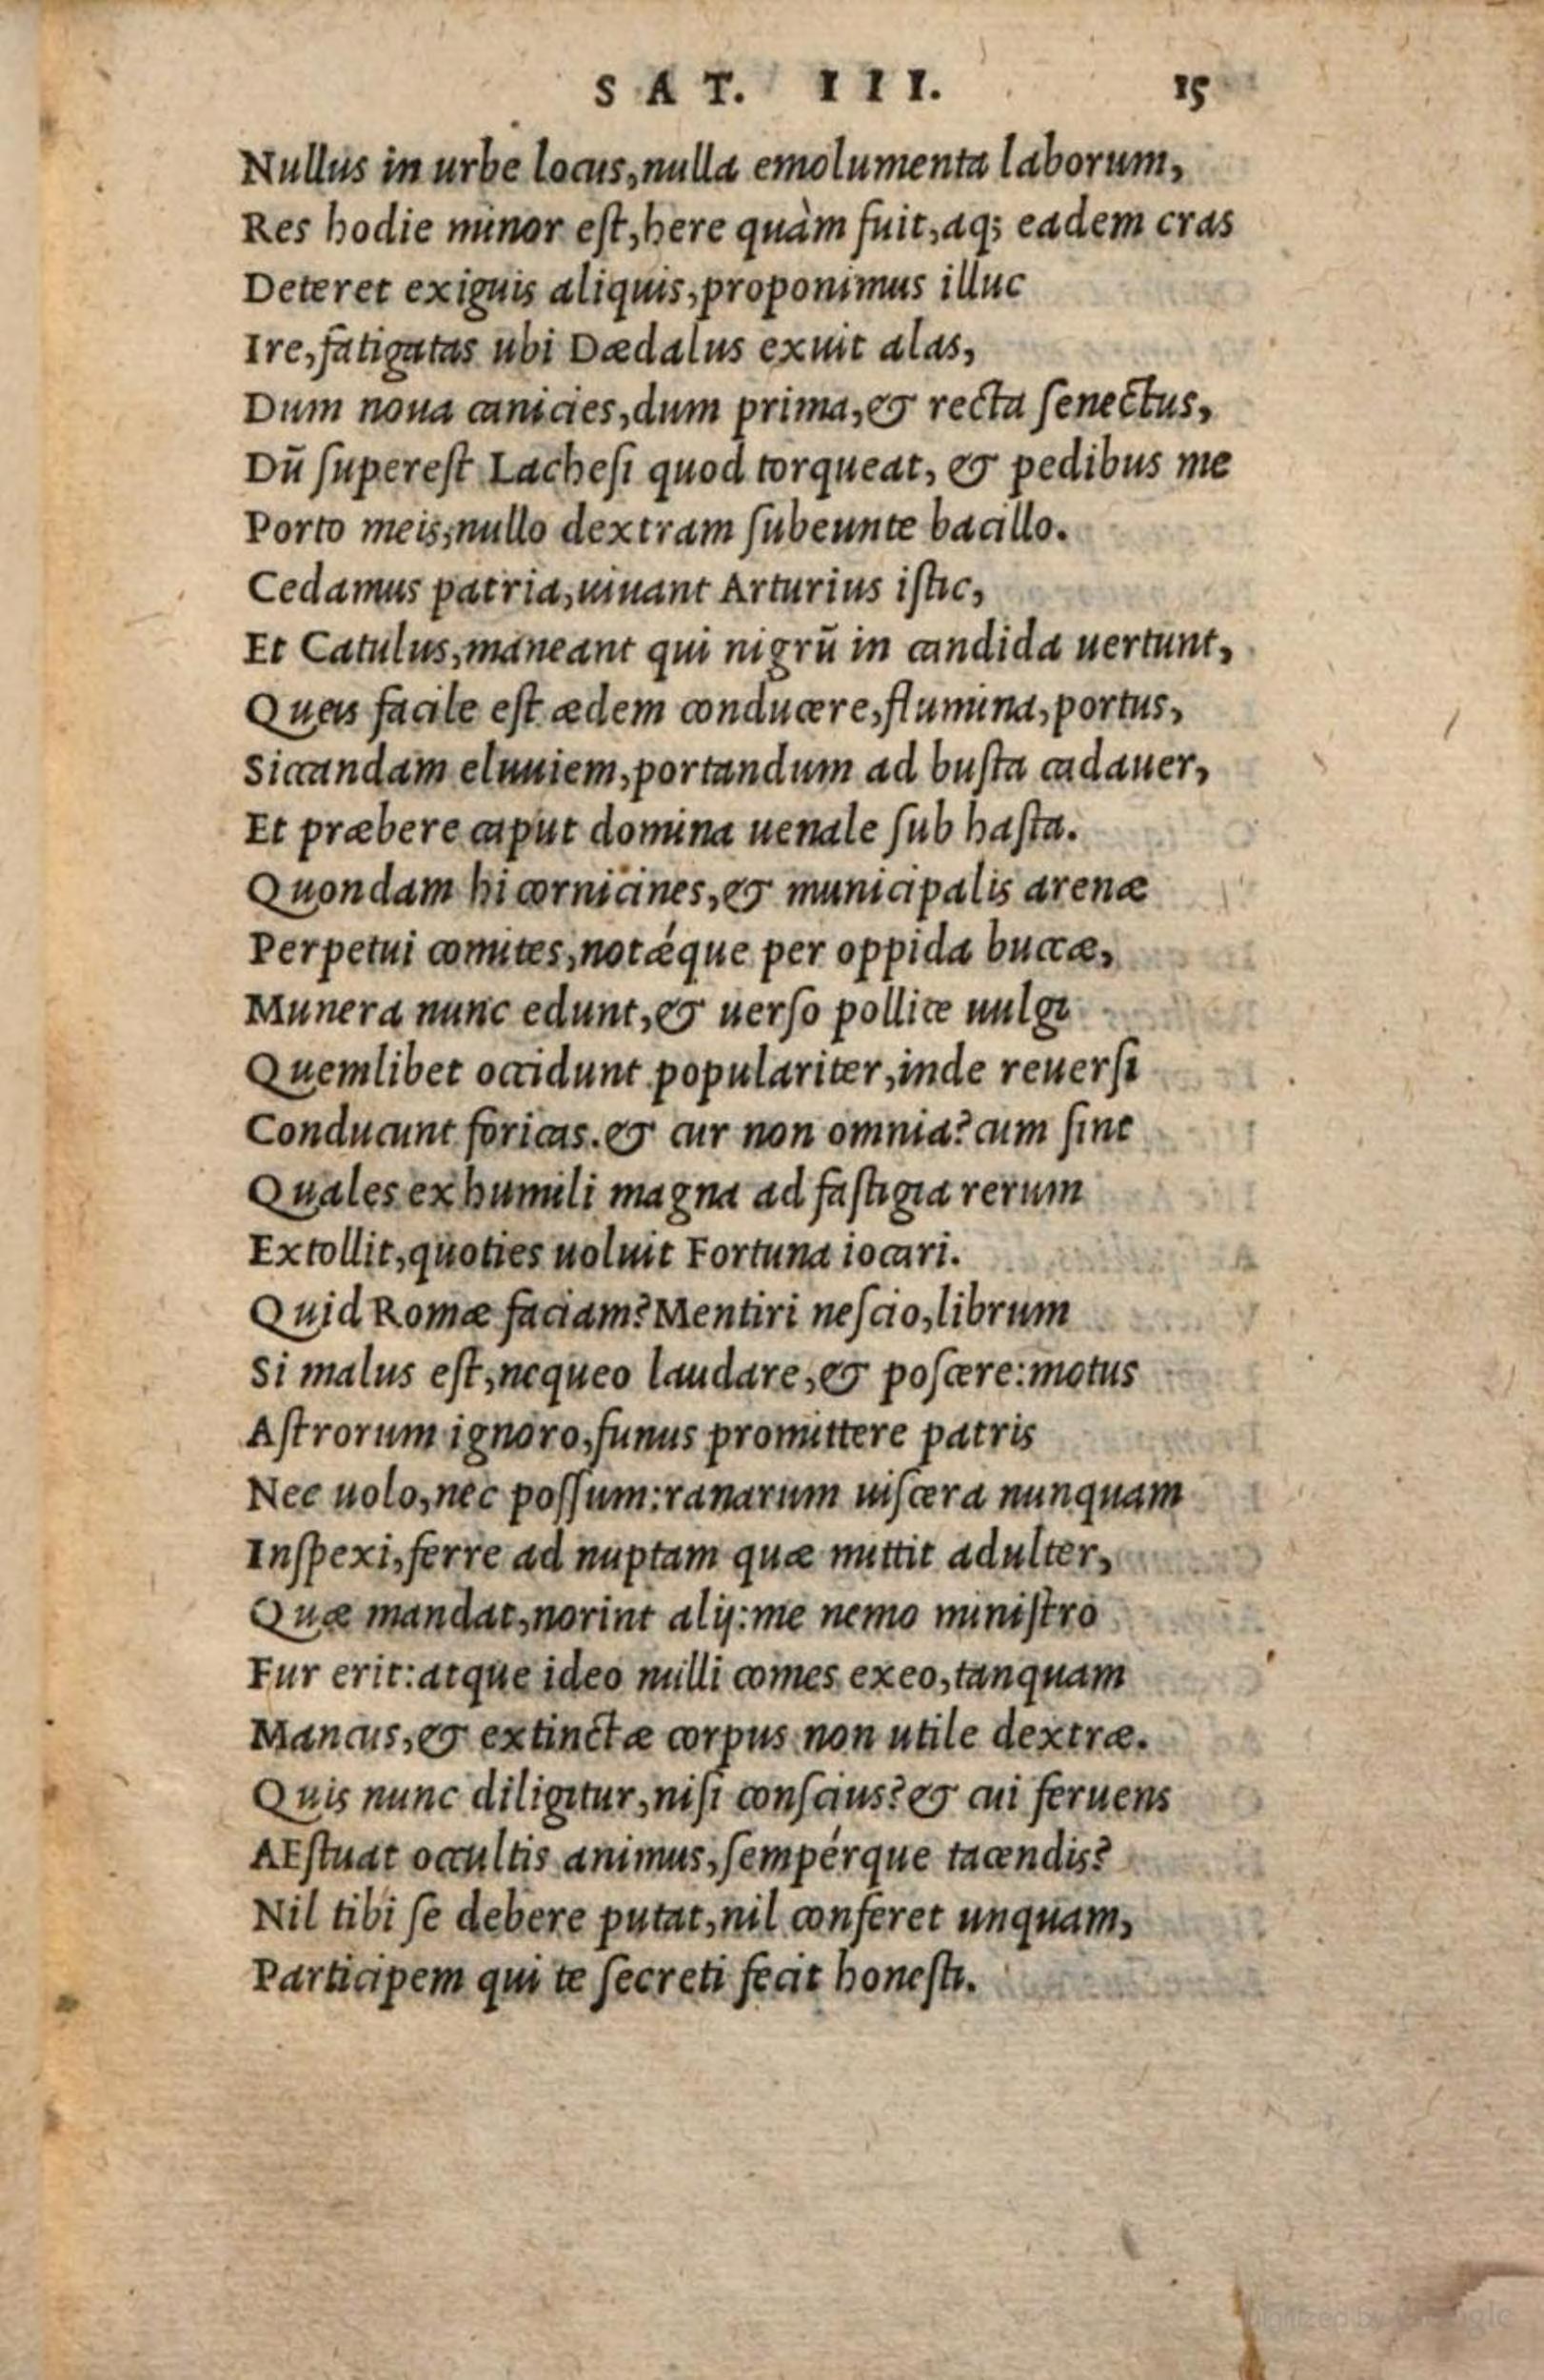 SAT. III. 15
Nullus in urbe locus, nulla emolumenta laborum,
Res hodie minor est, here quàm fuit, aq; eadem cras
Deteret exiguis aliquis, proponimus illuc
Ire, fatigatas ubi Dædalus exuit alas,
Dum noua canicies, dum prima, & recta ſenectus,
Dū ſupereſt Lacheſi quod torqueat, & pedibus me
Porto meis, nullo dextram ſubeunte bacillo.
Cedamus patria, uiuant Arturius iſtic,
Et Catulus, maneant qui nigrū in candida uertunt,
Queis facile eſt ædem conducere, flumina, portus,
Siccandam eluuiem, portandum ad buſta cadauer,
Et præbere caput domina uenale ſub haſta.
Quondam hi cornicines, & municipalis arenæ
Perpetui comites, notǽque per oppida buccæ,
Munera nunc edunt, & uerſo pollice uulgi
Quemlibet occidunt populariter, inde reuerſi
Conducunt foricas. & cur non omnia? cum ſint
Quales ex humili magna ad faſtigia rerum
Extollit, quoties uoluit Fortuna iocari.
Quid Romæ faciam? Mentiri neſcio, librum
Si malus eſt, nequeo laudare, & poſcere: motus
Aſtrorum ignoro, funus promittere patris
Nec uolo, nec poſſum: ranarum uiſcera nunquam
Inſpexi, ferre ad nuptam quæ mittit adulter,
Quæ mandat, norint alij: me nemo miniſtro
Fur erit: atque ideo nulli comes exeo, tanquam
Mancus, & extinctæ corpus non utile dextræ.
Quis nunc diligitur, niſi conſcius? & cui feruens
AEſtuat occultis animus, ſempérque tacendis?
Nil tibi ſe debere putat, nil conferet unquam,
Participem qui te ſecreti fecit honeſti.
Digitized by Google